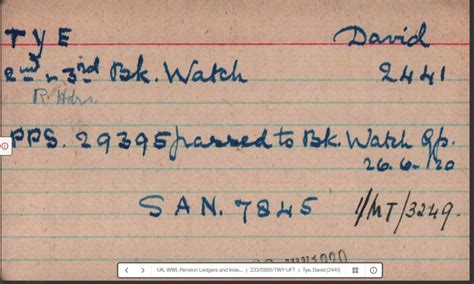 TYE David
2nd 3rd Bk. Watch 2441
R. Hdrs.
PPS. 29395 passed to Bk. Watch Gp.
26.6.20
SAN. 7845 1/MT/3249.
UK, WWI, Pension Ledgers and Inde... 233/0891/TWY-UFT Tye, David (2441)